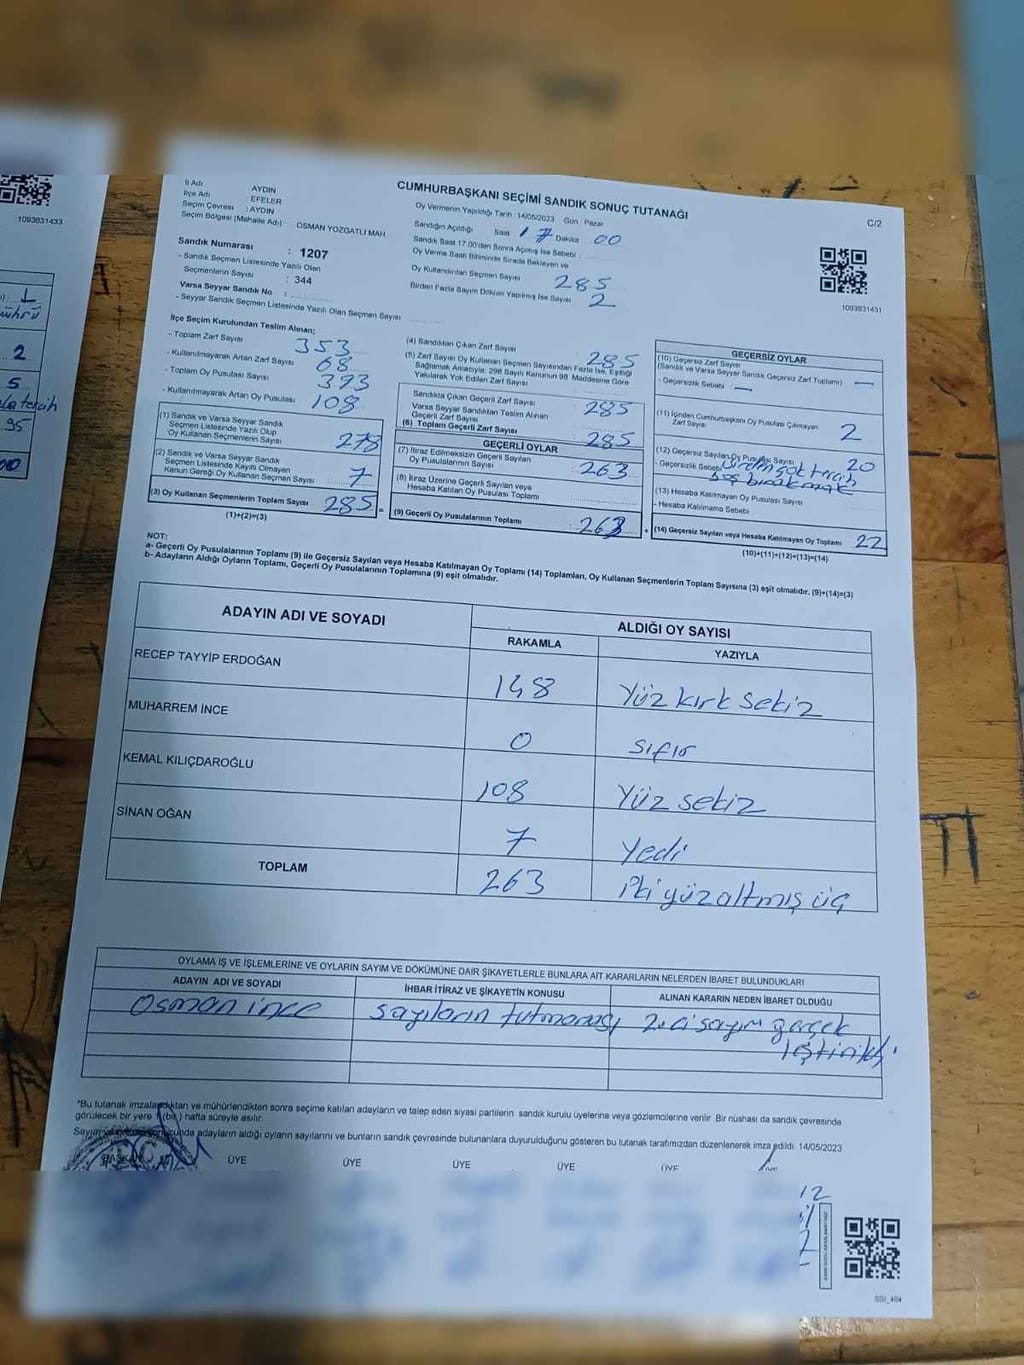 1093831433
L
ührü
2
5
la tercih
95
İl Adı AYDIN
İlçe Adı EFELER
Seçim Çevresi : AYDIN
Seçim Bölgesi (Mahalle Adı) : OSMAN YOZGATLI MAH.
Sandık Numarası : 1207
- Sandık Seçmen Listesinde Yazılı Olan
Seçmenlerin Sayısı : 344
Varsa Seyyar Sandık No :
- Seyyar Sandık Seçmen Listesinde Yazılı Olan Seçmen Sayısı
CUMHURBAŞKANI SEÇİMİ SANDIK SONUÇ TUTANAĞI
C/2
Oy Vermenin Yapıldığı Tarih : 14/05/2023 Gün : Pazar
Sandığın Açıldığı Saat 17 Dakika 00
Sandık Saat 17.00'den Sonra Açılmış İse Sebebi
Oy Verme Saati Bitiminde Sırada Bekleyen ve
Oy Kullandırılan Seçmen Sayısı 285
Birden Fazla Sayım Döküm Yapılmış İse Sayısı 2
1093831431
İlçe Seçim Kurulundan Teslim Alınan;
- Toplam Zarf Sayısı 353
- Kullanılmayarak Artan Zarf Sayısı 68
- Toplam Oy Pusulası Sayısı 393
- Kullanılmayarak Artan Oy Pusulası 108
(1) Sandık ve Varsa Seyyar Sandık
Seçmen Listesinde Yazılı Olup
Oy Kullanan Seçmenlerin Sayısı 278
(2) Sandık ve Varsa Seyyar Sandık
Seçmen Listesinde Kayıtlı Olmayan
Kanun Gereği Oy Kullanan Seçmen Sayısı 7
(3) Oy Kullanan Seçmenlerin Toplam Sayısı 285 =
(1)+(2)=(3)
(4) Sandıktan Çıkan Zarf Sayısı 285
(5) Zarf Sayısı Oy Kullanan Seçmen Sayısından Fazla İse, Eşitliği
Sağlamak Amacıyla, 298 Sayılı Kanunun 98. Maddesine Göre
Yakılarak Yok Edilen Zarf Sayısı
Sandıkta Çıkan Geçerli Zarf Sayısı 285
Varsa Seyyar Sandıktan Teslim Alınan
Geçerli Zarf Sayısı
(6) Toplam Geçerli Zarf Sayısı 285
GEÇERLİ OYLAR
(7) İtiraz Edilmeksizin Geçerli Sayılan
Oy Pusulalarının Sayısı 263
(8) İtiraz Üzerine Geçerli Sayılan veya
Hesaba Katılan Oy Pusulası Toplamı
(9) Geçerli Oy Pusulalarının Toplamı : 263 +
GEÇERSİZ OYLAR
(10) Geçersiz Zarf Sayısı
(Sandık ve Varsa Seyyar Sandık Geçersiz Zarf Toplamı) —
- Geçersizlik Sebebi —
(11) İçinden Cumhurbaşkanı Oy Pusulası Çıkmayan
Zarf Sayısı 2
(12) Geçersiz Sayılan Oy Pusulası Sayısı 20
- Geçersizlik Sebebi Birden çok tercih
boş bırakmak
(13) Hesaba Katılmayan Oy Pusulası Sayısı
- Hesaba Katılmama Sebebi
(14) Geçersiz Sayılan veya Hesaba Katılmayan Oy Toplamı 22
(10)+(11)+(12)+(13)=(14)
NOT:
a- Geçerli Oy Pusulalarının Toplamı (9) ile Geçersiz Sayılan veya Hesaba Katılmayan Oy Toplamı (14) Toplamları, Oy Kullanan Seçmenlerin Toplam Sayısına (3) eşit olmalıdır. (9)+(14)=(3)
b- Adayların Aldığı Oyların Toplamı, Geçerli Oy Pusulalarının Toplamına (9) eşit olmalıdır.
ADAYIN ADI VE SOYADI ALDIĞI OY SAYISI
RAKAMLA YAZIYLA
RECEP TAYYİP ERDOĞAN 148 Yüz kırk sekiz
MUHARREM İNCE 0 sıfır
KEMAL KILIÇDAROĞLU 108 Yüz sekiz
SİNAN OĞAN 7 Yedi
TOPLAM 263 iki yüz altmış üç
OYLAMA İŞ VE İŞLEMLERİNE VE OYLARIN SAYIM VE DÖKÜMÜNE DAİR ŞİKAYETLERLE BUNLARA AİT KARARLARIN NELERDEN İBARET BULUNDUKLARI
ADAYIN ADI VE SOYADI İHBAR İTİRAZ VE ŞİKAYETİN KONUSU ALINAN KARARIN NEDEN İBARET OLDUĞU
Osman ince sayıların tutmaması 2. ci sayım gerçek
leştirildi.
*Bu tutanak imzalandıktan ve mühürlendikten sonra seçime katılan adayların ve talep eden siyasi partilerin sandık kurulu üyelerine veya gözlemcilerine verilir. Bir nüshası da sandık çevresinde
görülecek bir yere 1 (bir) hafta süreyle asılır.
Sayım sonucunda adayların aldığı oyların sayılarını ve bunların sandık çevresinde bulunanlara duyurulduğunu gösteren bu tutanak tarafımızdan düzenlenerek imza edildi. 14/05/2023
BAŞKAN ÜYE ÜYE ÜYE ÜYE ÜYE
12